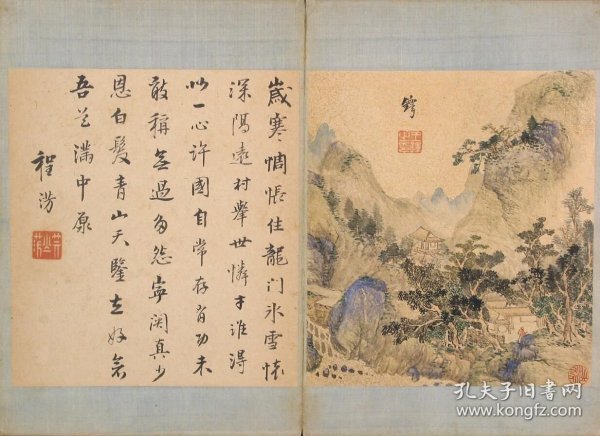 歲寒惆悵住龍门氷雪懷
深陽遠村舉世憐才誰得
似一心许國自常存肯功未
敢稱無過多怨寧闵真少
恩白髮青山天鑒在好看
吾芝滿中原
程涝
孔夫子旧书网
www.kongfz.com